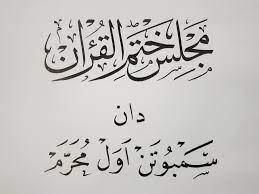 مجلس ختم القرءان
دان
سمبوتن اول محرّم